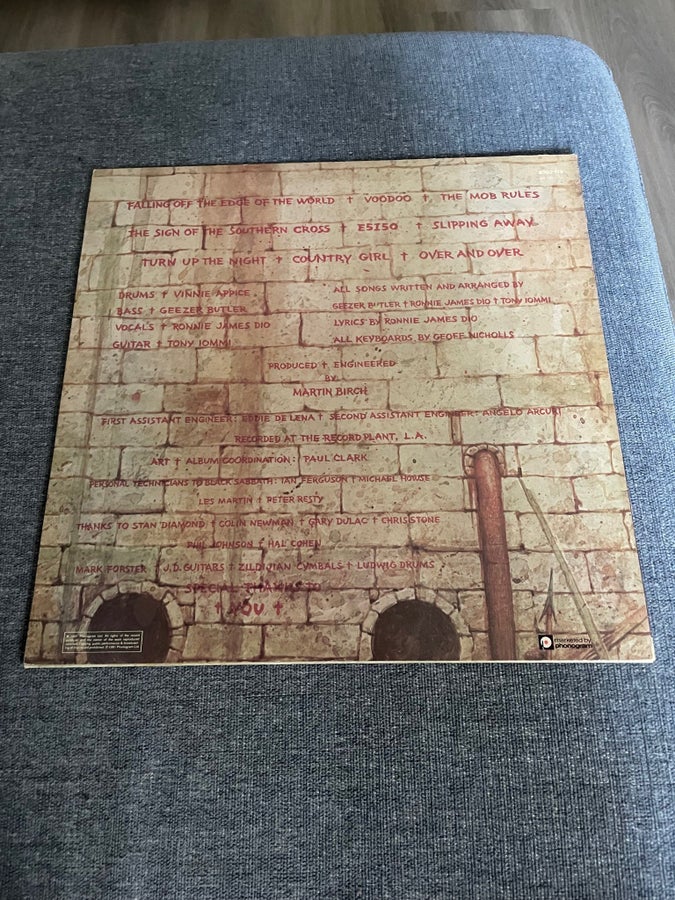 FALLING OFF THE EDGE OF THE WORLD † VOODOO † THE MOB RULES
THE SIGN OF THE SOUTHERN CROSS † E5150 † SLIPPING AWAY
TURN UP THE NIGHT † COUNTRY GIRL † OVER AND OVER
DRUMS † VINNIE APPICE
BASS † GEEZER BUTLER
VOCALS † RONNIE JAMES DIO
GUITAR † TONY IOMMI
ALL SONGS WRITTEN AND ARRANGED BY
GEEZER BUTLER † RONNIE JAMES DIO † TONY IOMMI
LYRICS BY RONNIE JAMES DIO
ALL KEYBOARDS BY GEOFF NICHOLLS
PRODUCED † ENGINEERED
BY
MARTIN BIRCH
FIRST ASSISTANT ENGINEER: EDDIE DELENA † SECOND ASSISTANT ENGINEER: ANGELO ARCURI
RECORDED AT THE RECORD PLANT, L.A.
ART † ALBUM COORDINATION: PAUL CLARK
PERSONAL TECHNICIANS TO BLACK SABBATH: IAN FERGUSON † MICHAEL HOWSE
LES MARTIN † PETER RESTY
THANKS TO STAN DIAMOND † COLIN NEWMAN † GARY DULAC † CHRIS STONE
PHIL JOHNSON † HAL COHEN
MARK FORSTER † J.D. GUITARS † ZILDJIAN CYMBALS † LUDWIG DRUMS
SPECIAL THANKS TO
† YOU †
marketed by
phonogram